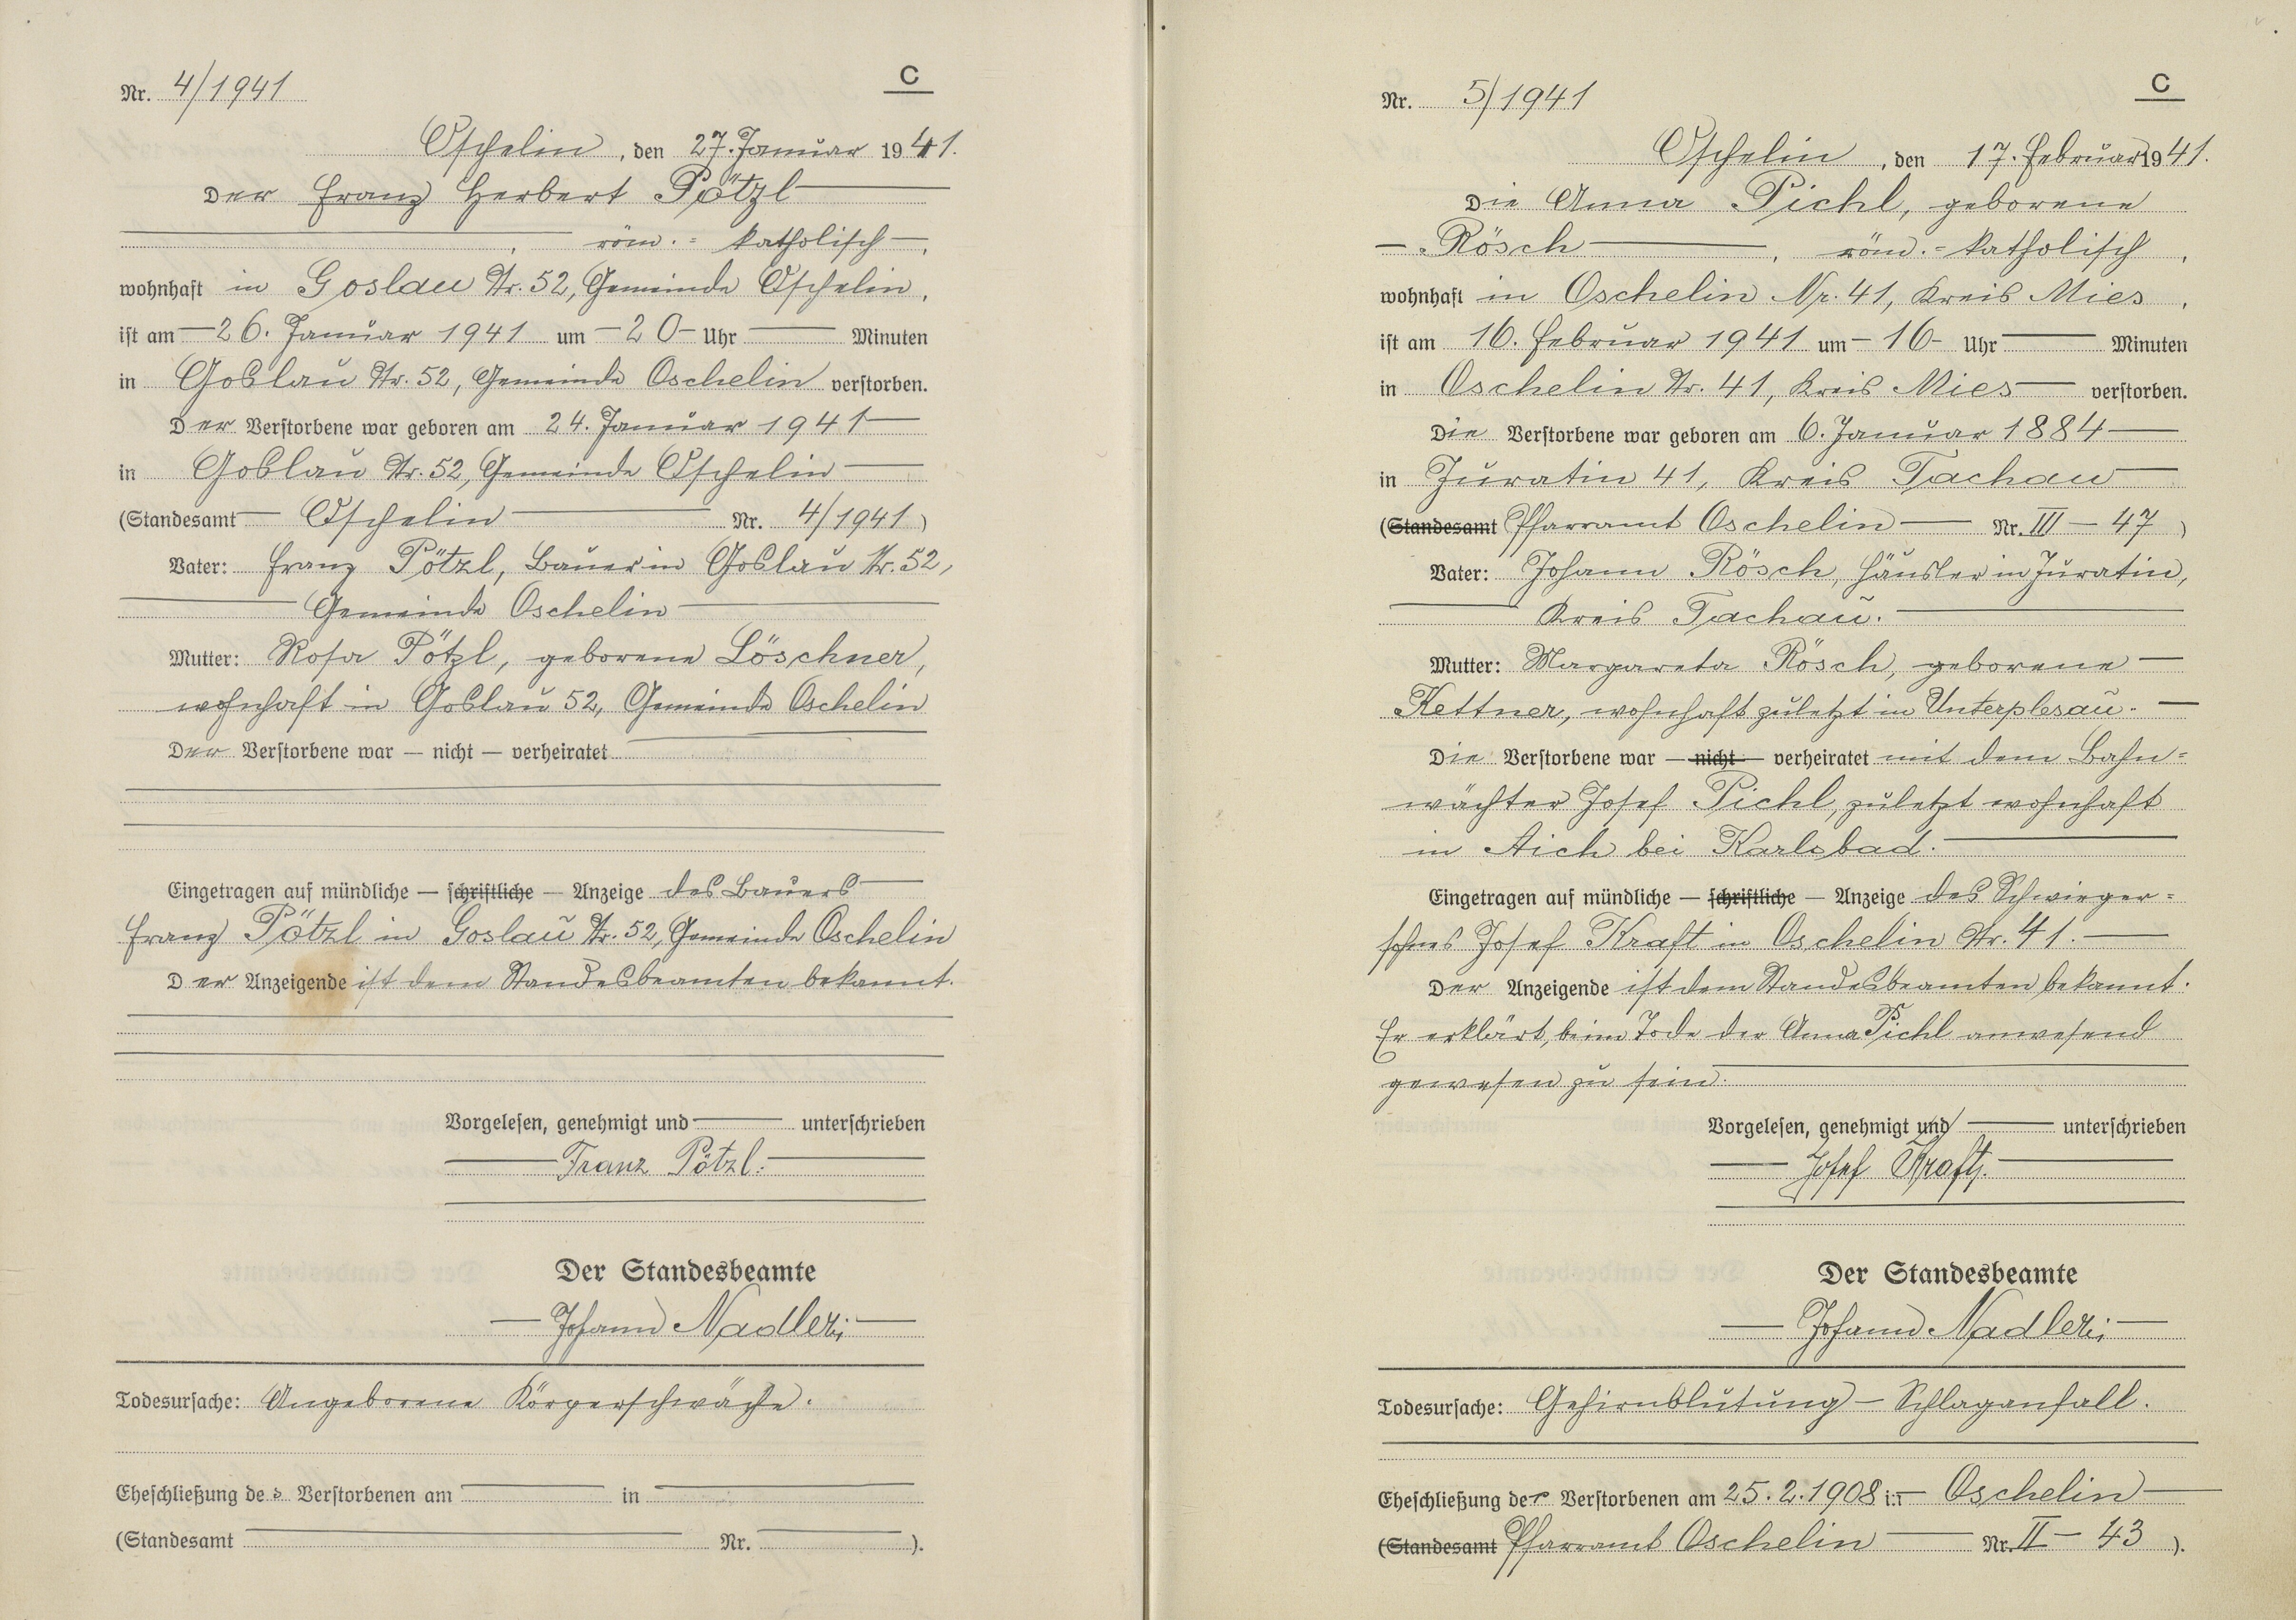 C
Nr. 4/1941
Oschelin, den 27. Januar 1941.
Der Franz Herbert Pötzl
, röm.= katholisch,
wohnhaft in Goslau Nr. 52, Gemeinde Oschelin,
ist am 26. Januar 1941 um 20 Uhr Minuten
in Goslau Nr. 52, Gemeinde Oschelin verstorben.
Der Verstorbene war geboren am 24. Januar 1941
in Goslau Nr. 52, Gemeinde Oschelin
(Standesamt Oschelin Nr. 4/1941)
Vater: Franz Pötzl, Bauer in Goslau Nr. 52,
Gemeinde Oschelin
Mutter: Rosa Pötzl, geborene Löschner,
wohnhaft in Goslau 52, Gemeinde Oschelin
Der Verstorbene war — nicht — verheiratet
Eingetragen auf mündliche — schriftliche — Anzeige des Bauers
Franz Pötzl in Goslau Nr. 52, Gemeinde Oschelin
Der Anzeigende ist dem Standesbeamten bekannt.
Vorgelesen, genehmigt und unterschrieben
Franz Pötzl.
Der Standesbeamte
Johann Nadler;
Todesursache: Angeborene Körperschwäche.
Eheschließung des Verstorbenen am in
(Standesamt Nr. ).
C
Nr. 5/1941
Oschelin, den 17. Februar 1941.
Die Anna Pichl, geborene
Rösch, röm.= katholisch,
wohnhaft in Oschelin Nr. 41, Kreis Mies,
ist am 16. Februar 1941 um 16 Uhr Minuten
in Oschelin Nr. 41, Kreis Mies verstorben.
Die Verstorbene war geboren am 6. Januar 1884
in Juratin 41, Kreis Tachau
(Standesamt Pfarramt Oschelin Nr. III — 47)
Vater: Johann Rösch, Häusler in Juratin,
Kreis Tachau.
Mutter: Margareta Rösch, geborene
Kettner, wohnhaft zuletzt in Unterplesau.
Die Verstorbene war — nicht — verheiratet mit dem Bahn=
wächter Josef Pichl, zuletzt wohnhaft
in Aich bei Karlsbad.
Eingetragen auf mündliche — schriftliche — Anzeige des Schwieger=
sohnes Josef Kraft in Oschelin Nr. 41.
Der Anzeigende ist dem Standesbeamten bekannt.
Er erklärt, beim Tode der Anna Pichl anwesend
gewesen zu sein.
Vorgelesen, genehmigt und unterschrieben
Josef Kraft.
Der Standesbeamte
Johann Nadler;
Todesursache: Gehirnblutung — Schlaganfall.
Eheschließung der Verstorbenen am 25.2.1908 in Oschelin
(Standesamt Pfarramt Oschelin Nr. II — 43).